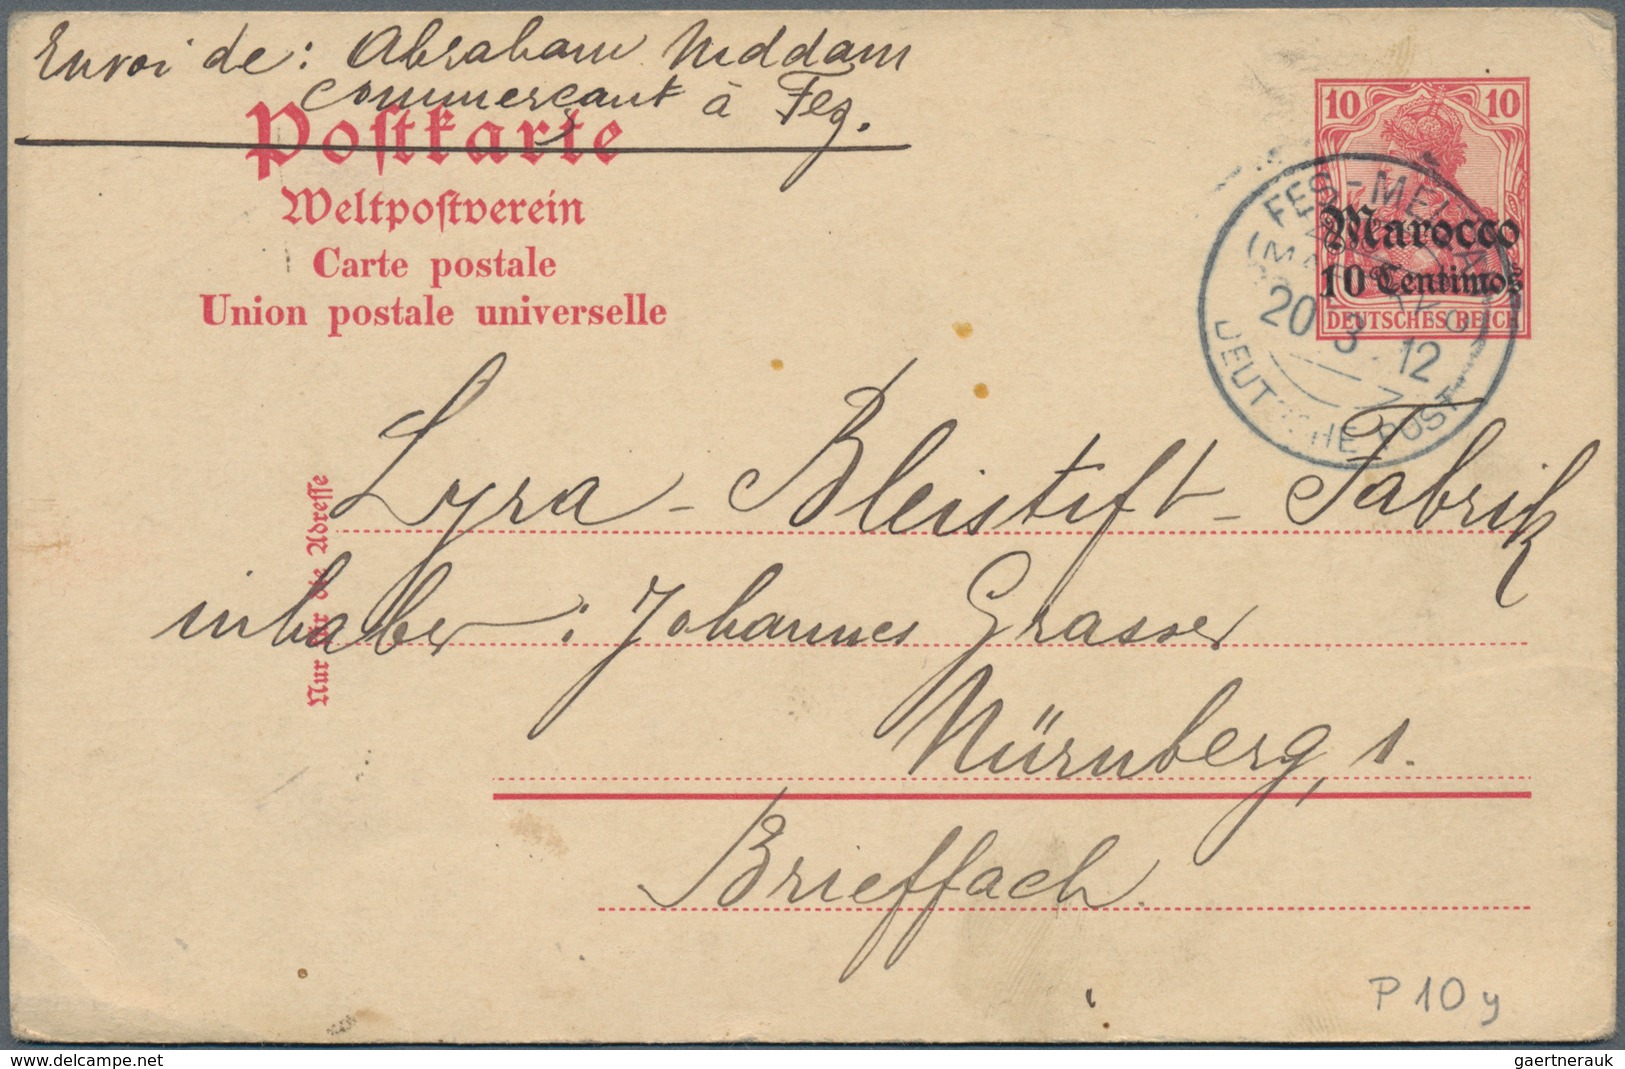 Envoi de: Abraham Niddam
Commerçant à Fez.
Postkarte
Weltpostverein
Carte postale
Union postale universelle
10 10
Marocco
10 Centimos
DEUTSCHES REICH
FES-MELLAH
20 3 12
DEUTSCHE POST
Nur für die Adresse
Lyra - Bleistift - Fabrik
inhaber: Johannes Grasser
Nürnberg, 1.
Brieffach.
P 10 y
www.delcampe.net
gaertnerauk